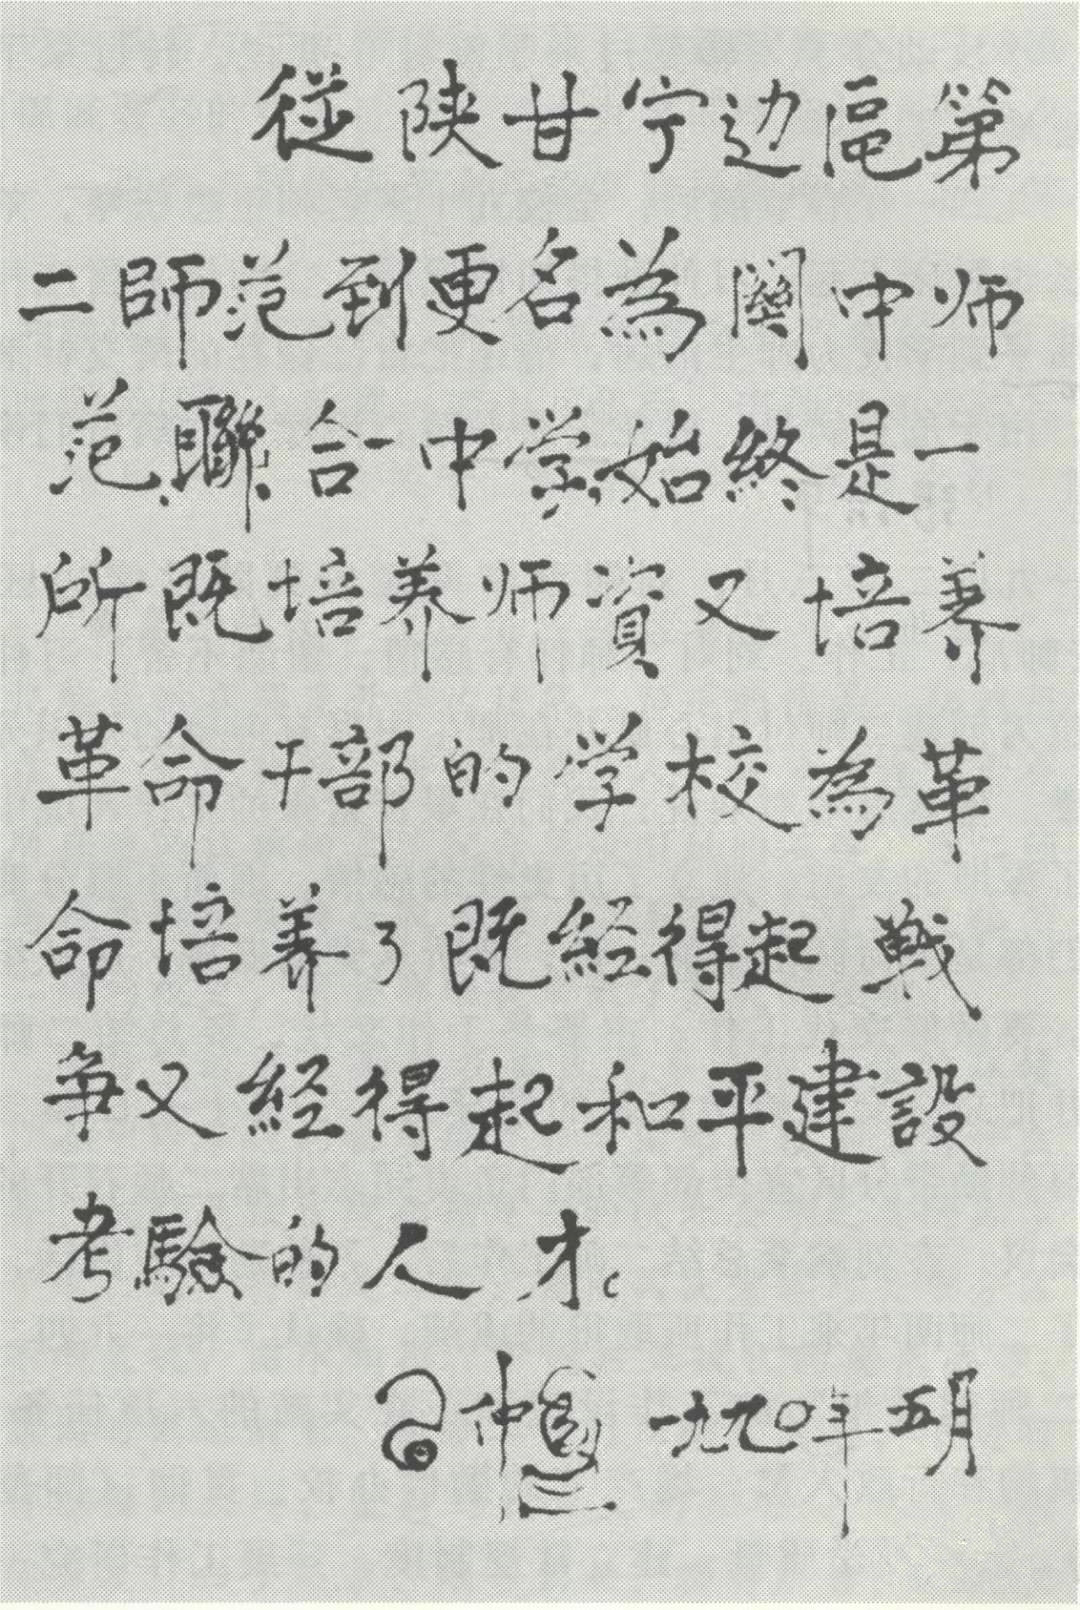 從陕甘宁边區第
二師范到更名為関中师
范、聯合中学,始終是一
所既培养师資又培养
革命干部的学校為革
命培养了既経得起战
争又経得起和平建設
考驗的人才。
习仲勳 一九九〇年五月